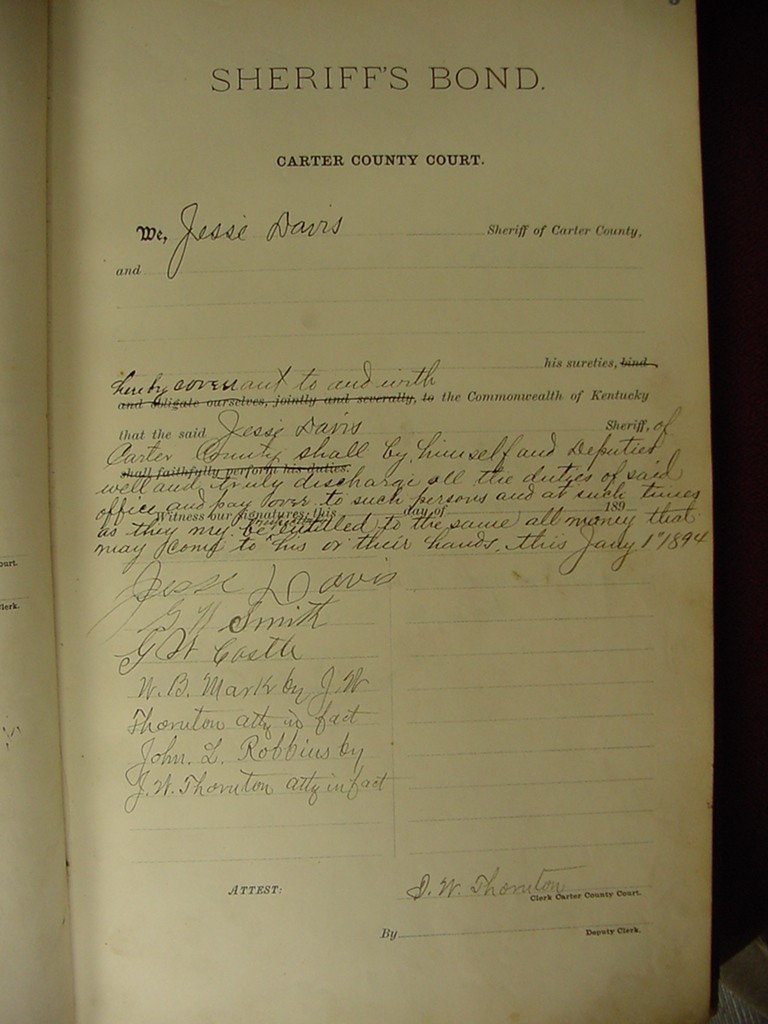 SHERIFF'S BOND.
CARTER COUNTY COURT.
We, Jesse Davis Sheriff of Carter County,
and
his sureties, bind
hereby covenant to and with
and obligate ourselves, jointly and severally, to the Commonwealth of Kentucky
that the said Jesse Davis Sheriff, of
Carter County shall by himself and Deputies
shall faithfully perform his duties.
well and truly discharge all the duties of said
office and pay over to such persons and at such times
Witness our signatures, this day of 189
as they my be entitled to the same all money that
may come to his or their hands, this Jany 1" 1894
Jesse Davis
Smith
G W Castle
W. B. Mark by J. W
Thornton atty in fact
John. L. Robbins by
J. W. Thornton atty in fact
ATTEST:
J. W. Thornton
Clerk Carter County Court.
By
Deputy Clerk.
ourt.
lerk.